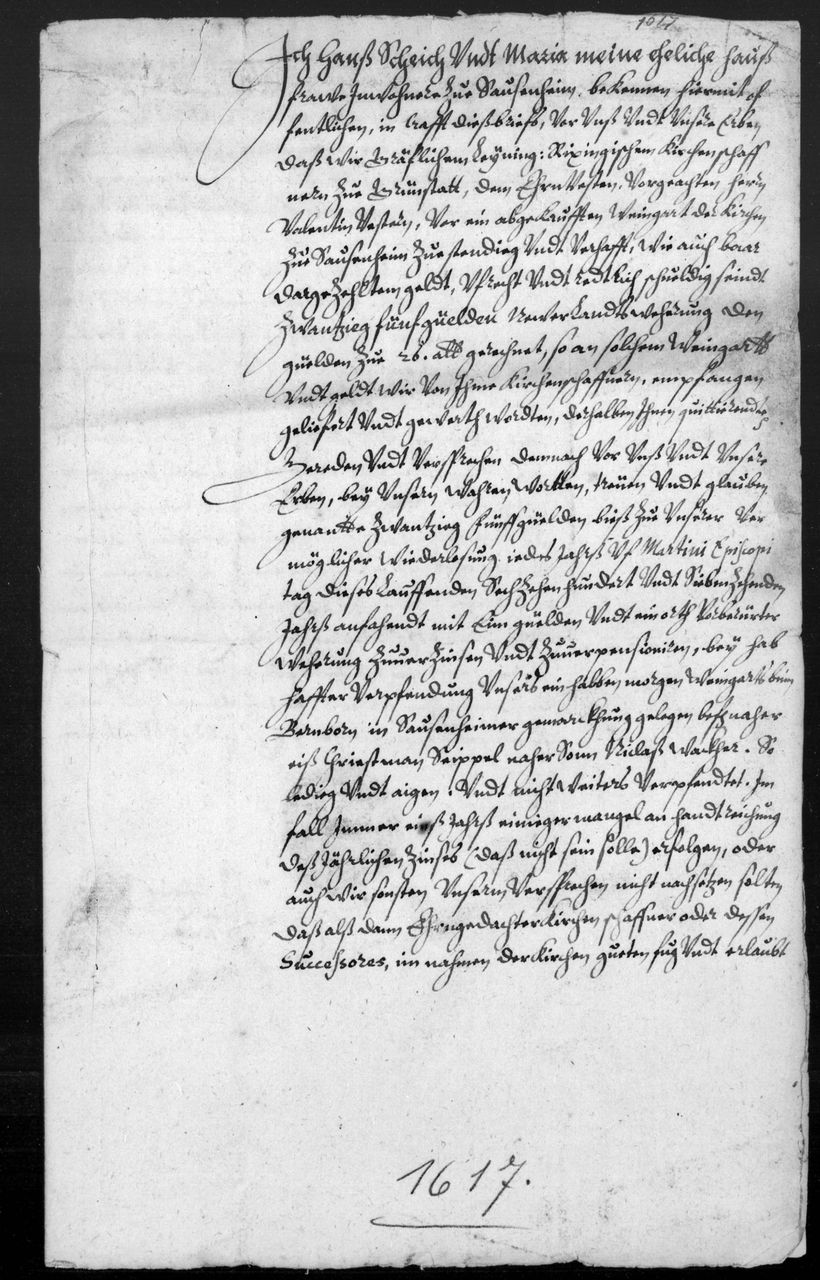 1617
Ich Hanß Scheich Undt Maria meine eheliche hauß
frawe Inwohnere Zue Sausenheim, bekennen hiermit of
fentlichen, in krafft dießbriefs, Vor Unß Undt Unsere Erben
daß wir Gräflichem Leyning: Rixingischem Kirchenschaff
nern Zue Grünstatt, dem EhrnVesten, Vorgeachten herrn
Valentin Vestern, Vor ein abgekaufften Weingart der Kirchen
Zue Sausenheim Zuestendieg Undt Verhafft, Wie auch baar
dargeZehltem geldt, Ufrecht Undt redtlich schueldig seindt
Zwantzieg fünf güelden Newer Landtswehrung den
güelden Zue 26. alb gerechnet, so an solchem Weingartt
Undt geldt wir Von Ihme Kirchenschaffnern, empfangen
geliefert Undt gewerth wordten, derhalben Ihnen quittierendte
Gereden Undt Versprechen demnach Vor Unß Undt Unsere
Erben, bey Unsern Wahren Wortten, treüen Undt glauben
genantte Zwantzieg fünff güelden bieß Zue Unserer Ver
möglicher Wiederlosung iedes Jahrß Uf Martini Episcopi
tag dieses Lauffenden SechZehenhundert Undt SiebenZehenden
Jahrß anfahendt mit Ein güelden Undt ein orth Vorberürter
Wehrung ZuuerZinsen Undt Zuuerpensioniren, bey hab
haffter Verpfendung Unsers ein halben morgen Weingarts beim
Bernborn in Sausenheimer gemarckhung gelegen befz naher
eiß Christman Seippel naher Sonn Niclaß Wackher. So
ledieg Undt aigen: Undt nicht Weiters Verpfendtet. Im
fall Immer eineß Jahrß einieger mangel an handtreichung
deß Jährlichen Zinses (daß nicht sein solle) erfolgen, oder
auch wir sonsten Unserm Versprechen nicht nachsetzen solten
daß alß dann Ehrngedachter Kirchenschaffner oder dessen
Successores, im nahmen der Kirchen gueten fug Undt erlaubt
1617.